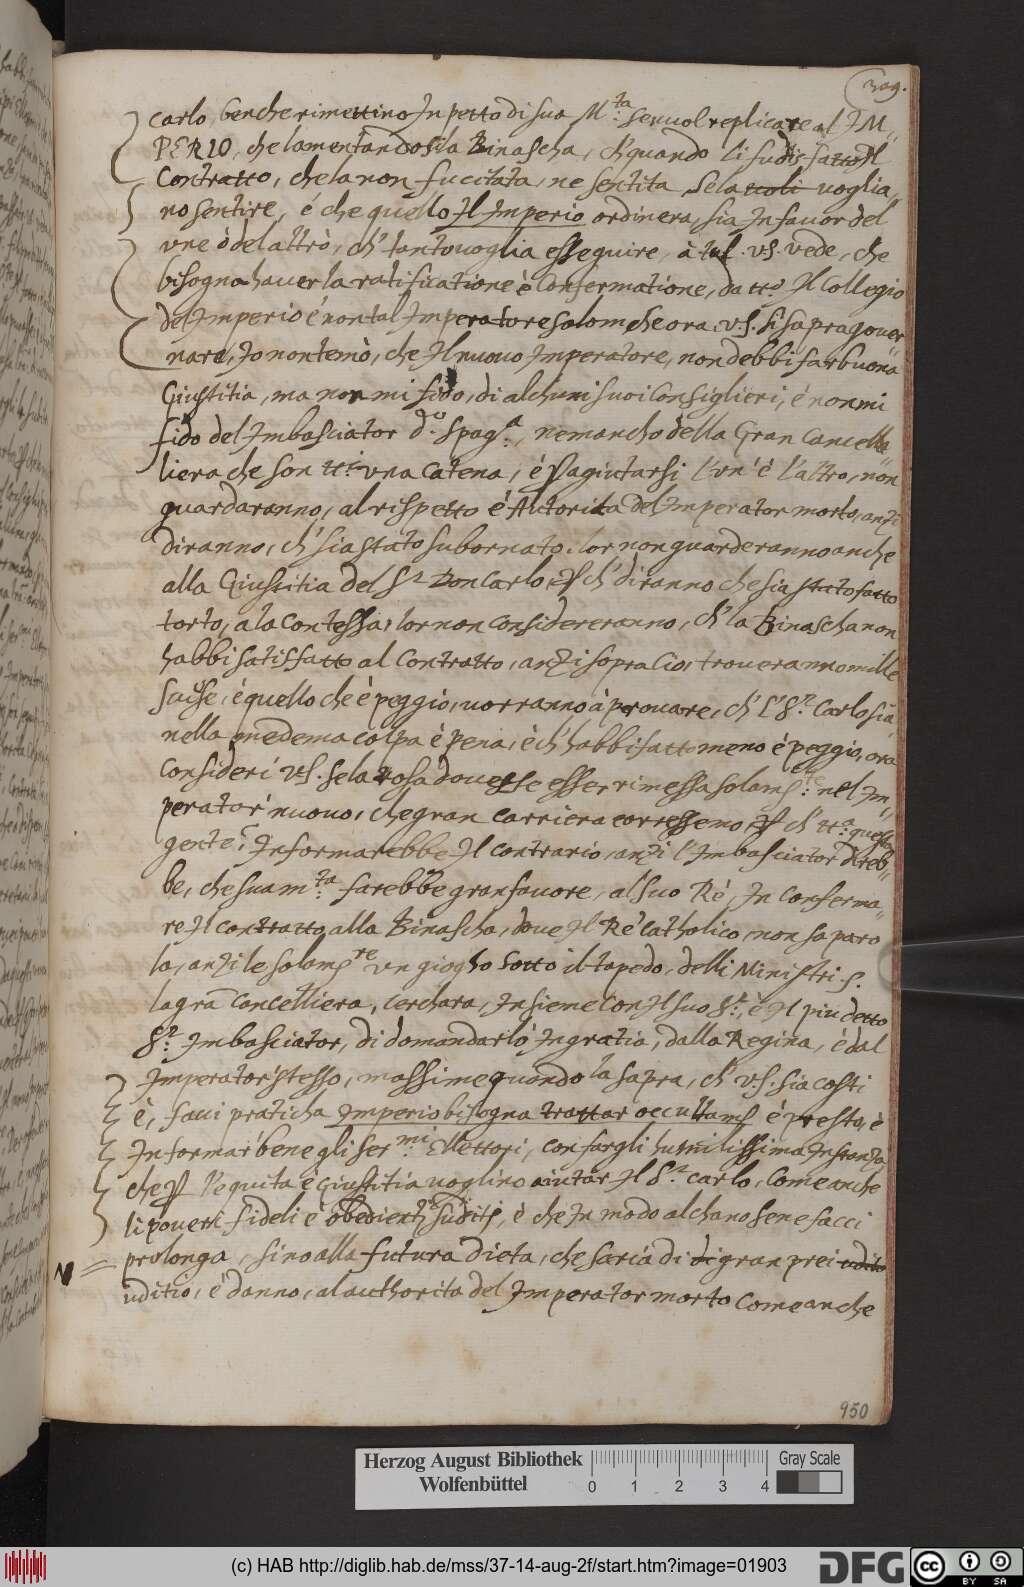 309.
Carlo, benche rimettino In petto di sua M.ta se vuol replicare al IM=
PERIO, che lamentandosi la Binascha, ch' quando li fu disfatto Il
Contratto, che la non fu citata, ne sentita se la voglia
no sentire, é che quello Il Imperio ordinera, sia In favor del'
vne ò del altrò, ch' tanto voglia esseguire, à tal. v.s. vede, che
bisogna haver la ratificatione è Confermatione, da tt.o Il Collegio
del Imperio é non tal Imperatore solom che ora. v.s. si sapra gover
nare, Io non temò, che Il nuovo Imperatore, non debbi far buona
Giustitia, ma non mi fido, di alchuni suoi Consiglieri, é non mi
fido del Imbasciator d.o Spag.a, ne mancho della Gran Cancella
liera che son tt.i vna Catena, é p agiutarsi l'vn' è l'altro, non
guardaranno, al rispetto é Autorita del Imperator morto, anzi
diranno, ch' sia stato subornato. lor non guarderanno anche
alla Giustitia del S.r Don Carlo, p ch' diranno che sia stato fatto
torto, a la Contessa, lor non Considereranno, ch' la Binascha non
habbi satisfatto al Contratto, anzi sopra Cio, troveranno mille
scuse, é quello che è peggio, vorranno à provare, ch' l' S.r Carlo sia
nella medema colpa è pena, è ch' habbi fatto meno è peggio, ora
Consideri v.s. se la Cosa dovesse esser rimessa solam.te nel Im=
perator' nuovo, che gran carriera corressemo, p ch' tt.a questa
gente Informarebbe Il contrario, anzi l' Imbasciator direb=
be, che sua m.ta farebbe gran favore, al suo Ré, In Conferma=
re Il contratto alla Binascha, dove Il Ré Catholico, non sa paro
la, anzi le solam.te vn giogho sotto il tapedo, delli Ministri. S.
la gra Concelliera, cerchara, Insieme con Il suo S.r, è Il piu detto
S.r Imbasciator, di domandarlò In gratia, dalla Regina, é dal
Imperator' stesso, massime quando la sapra, ch' v.s. sia costi
è, faci praticha Imperio bisogna trattar occultam.e é presto, è
Informar' bene gli Ser.mi Elettori, con fargli humilissima Instanza
che p l'equita è giustitia voglino aiutar Il S.r Carlo, Come anche
li poveri fideli è obedienti suditi, è che In modo alchano se ne facci
prolonga, sino alla futura Dieta, che saria di gran prei
uditio, é danno, al authorita del Imperator morto Come anche
950
Herzog August Bibliothek
Wolfenbüttel
0 1 2 3 4
Gray Scale
(c) HAB http://diglib.hab.de/mss/37-14-aug-2f/start.htm?image=01903
DFG
cc BY SA